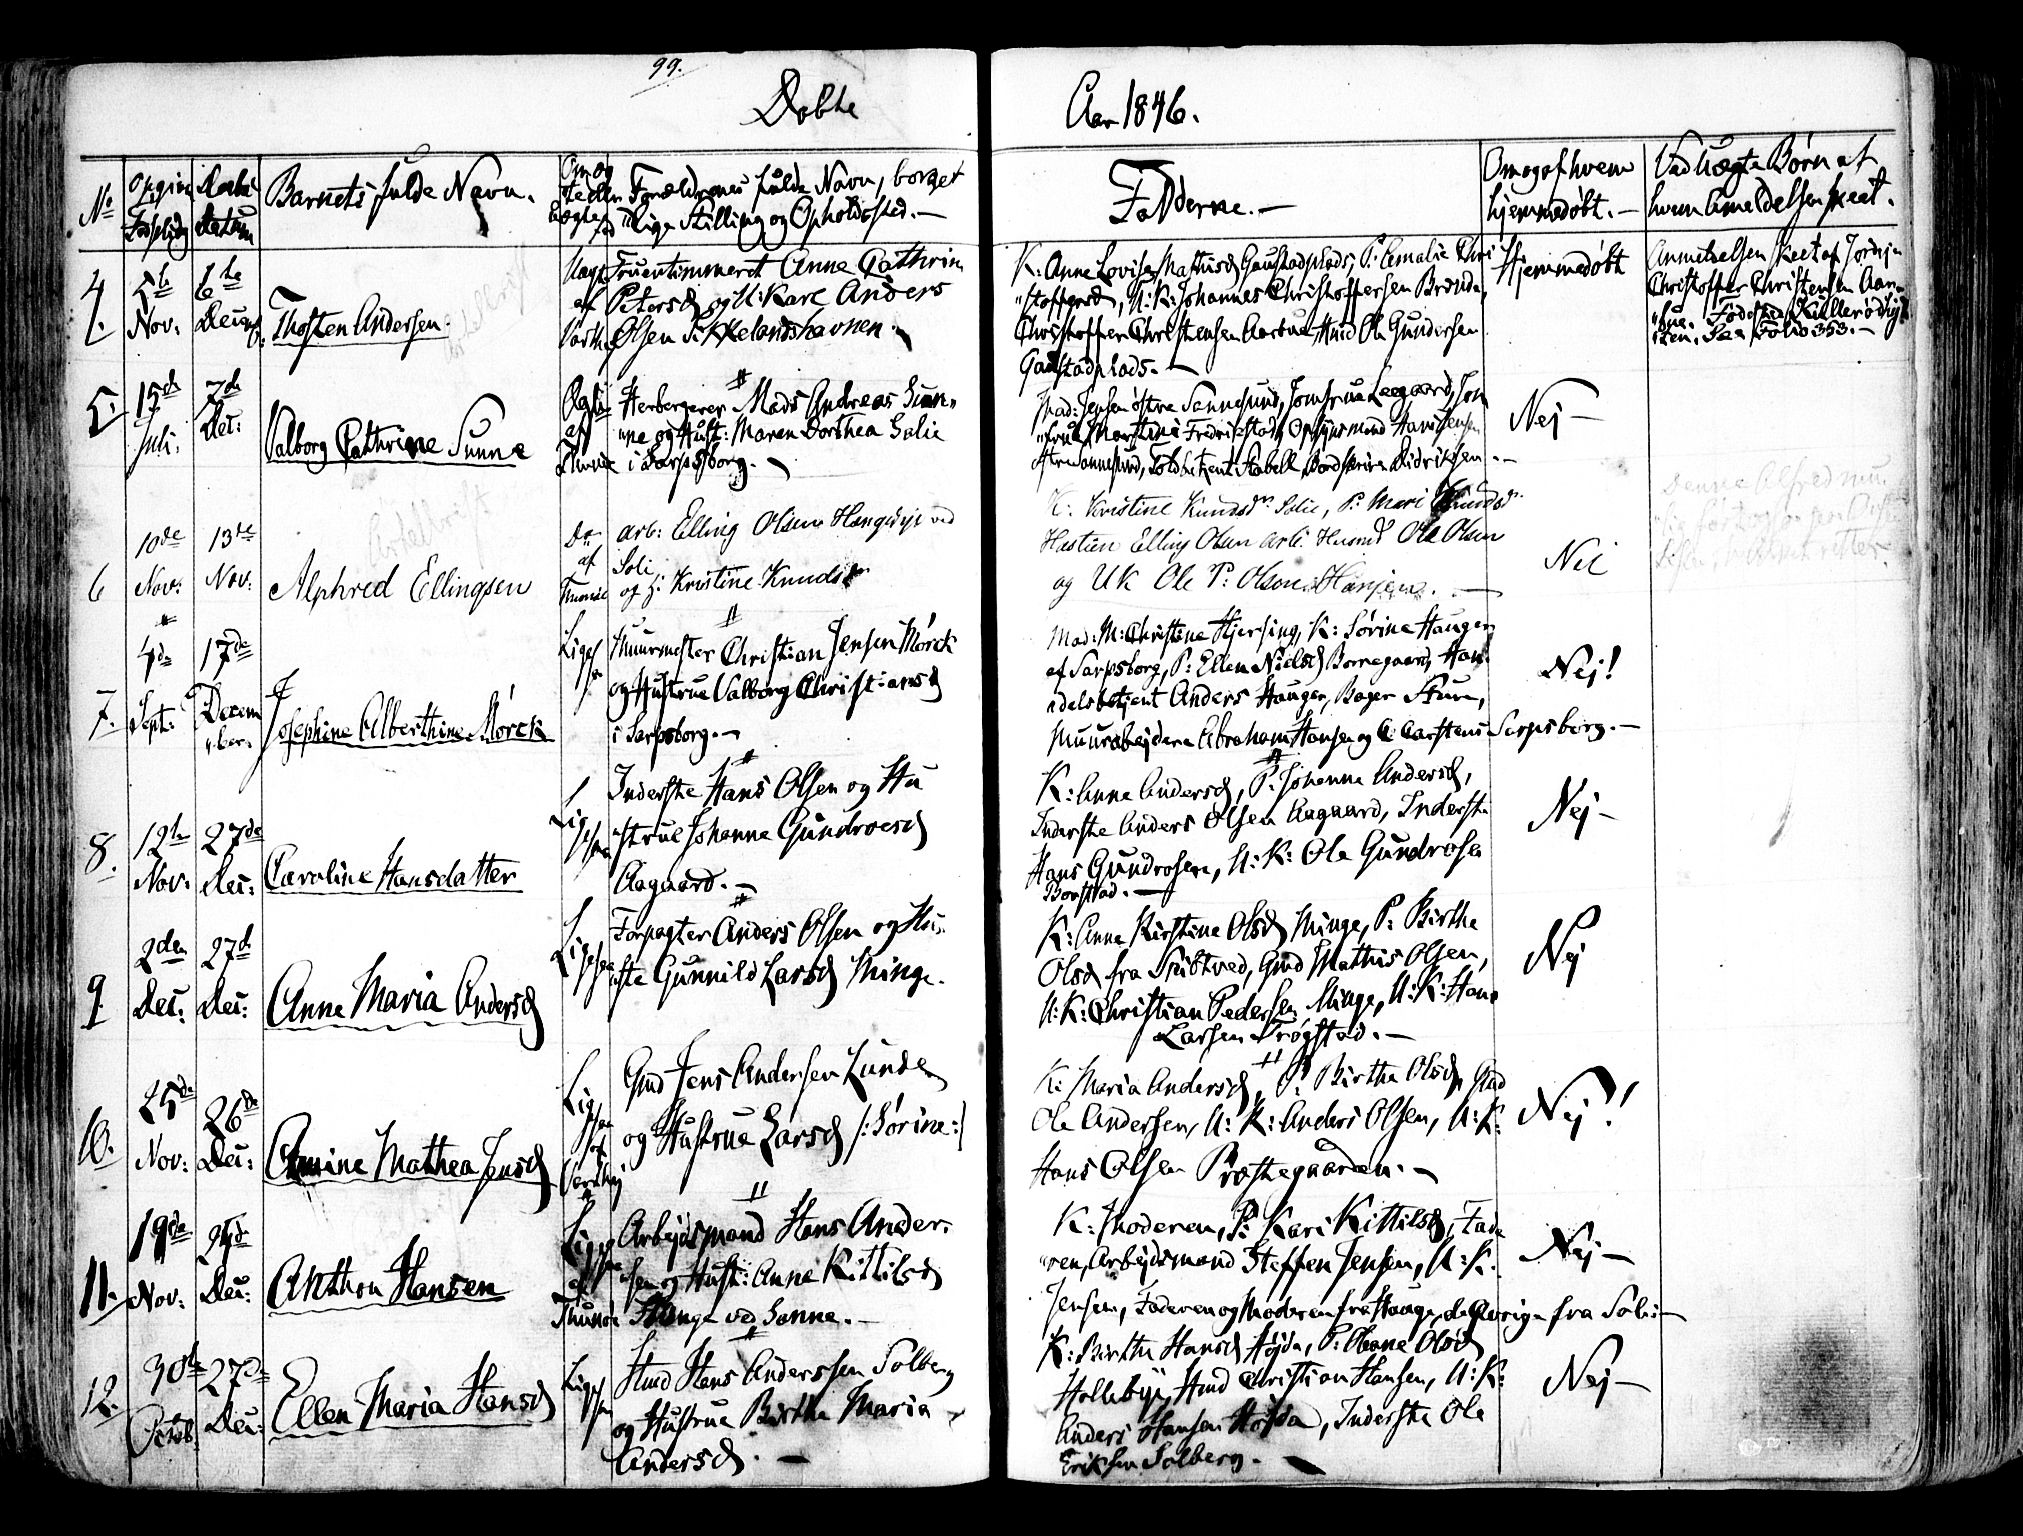 99.
Døbte
Aar 1846.
No
Barnets fulde Navn.
Forældrenes fulde Navn, borger
"lige Stilling og Opholdssted.—
Fadderne.—
Om og af hvem
hjemmedøbt.—
Ved Uægte Børn af
hvem Anmeldelsen skeet.
4
5te
Nov:
6te
Thosten Andersen.
Uægte
af
Fruentimmeret Anne Cathrin
Petersd og U: Karl Anders
Olsen Sikkelandshavnen.
K: Anne Lovise Mathisd Gaustadplads, P: Amalie Chri
"stoffersd, U: K: Johannes Christoffersen
Christoffer Christensen Aarbue, Hmd Ole Gundersen
Gaustadplads.—
Hjemmedøbt
Anmeldelsen skeet af
Christoffer Christensen Aar
"bue. Fødested
See Folio 353.—
5.
15de
Juli:
7de
Dec:
Valborg Cathrine Sunne
Ægte
af
Thune
Herbergerer Mads Andreas Sun"
"ne og Hust: Maren Dorthea Solie
i Sarpsborg.—
Mad: Jensen østre Sannesund, Jomfrue Leegaard, Jom
"frue Martine Fredrikstad, Opsynsmand Hans Jensen
Stabell, Didriksen.—
Nej—
6
10de
Nov:
13de
Nov:
Alphred Ellingsen
Do
af
Thune
Arb: Elling Olsen ved
Soli
og H: Kristine Knudsdr
K: Kristine Knudsdr Solie, P: Mari Knudsdr
Elling Olsen arb: Husmd Ole Olsen
og UK Ole P: Olsen
Nei
Denne Alfred
7.
4de
Sept:
17de
Decem
"ber.
Josephine Alberthine Mørck
Ligesaa
Muurmester Christian Jensen Mørck
og Hustrue Valborg Christiansd
i Sarpsborg.—
Mad: M: Christine Hjersing, K: Sørine Haugen
af Sarpsborg, P: Ellen Nielsd Borregaard, Han
"delsbetjent Anders Hauger, Bager Sturn,
Muurabejdere Abraham Hansen og C: Carstens Sarpsborg.—
Nej!
8.
12te
Nov:
27de
Dec:
Caroline Hansdatter
Ligesaa
Inderste Hans Olsen og Hu
"strue Johanne Gundroesd
Aagaard.—
K: Anne Andersd, P: Johanne Andersd,
Inderste Anders Olsen Aagaard, Inderste
Hans Gundrosen, U: K: Ole Gundrosen
Borstad.—
Nej—
9
2den
Dec:
27de
Dec:
Anne Maria Andersd
Ligesaa
Forpagter Anders Olsen og Hu"
Gunnild Larsd Minge.
K: Anne Kirstine Olsd Minge, P: Birthe
Olsd fra Skibtved, Gmd Mathis Olsen,
U: K: Christian Pedersen Minge, U: K: Hans
Larsen Trøgstad.—
Nej
10.
25de
Nov:
26de
Dec:
Amine Mathea Jensd
Ligesaa
af
Gmd Jens Andersen Lunde
og Hustrue Larsd /: Sørine :/
K: Maria Andersd, P: Birthe Olsd, Gmd
Ole Andersen, U: K: Anders Olsen, U: K:
Hans Olsen Præstegaarden.—
Nej!
11.
19de
Nov:
Dec:
Anthon Hansen
Ligesaa
af
Thune
Arbejdsmand Hans Ander"
"sen og Hust: Anne Kittilsd
Hauge ved Sanne.—
K: Moderen, P: Kari Kittilsd, Fade
"ren, Arbejdsmand Steffen Jensen, U: K.
Jensen, Faderen og Moderen fra Hauge, de øvrige fra Soli—
Nej—
12.
30te
Octob:
27de
Dec:
Ellen Maria Hansd
Ligesaa
Hmd Hans Anderssen Solberg
og Hustrue Birthe Maria
Andersd.—
K: Birthe Hansd Høyda, P: Oleane Olsd
Hollebye, Hmd Christian Hansen, U: K:
Anders Hansen Høyda, Inderste Ole
Eriksen Solberg.—
Nej—